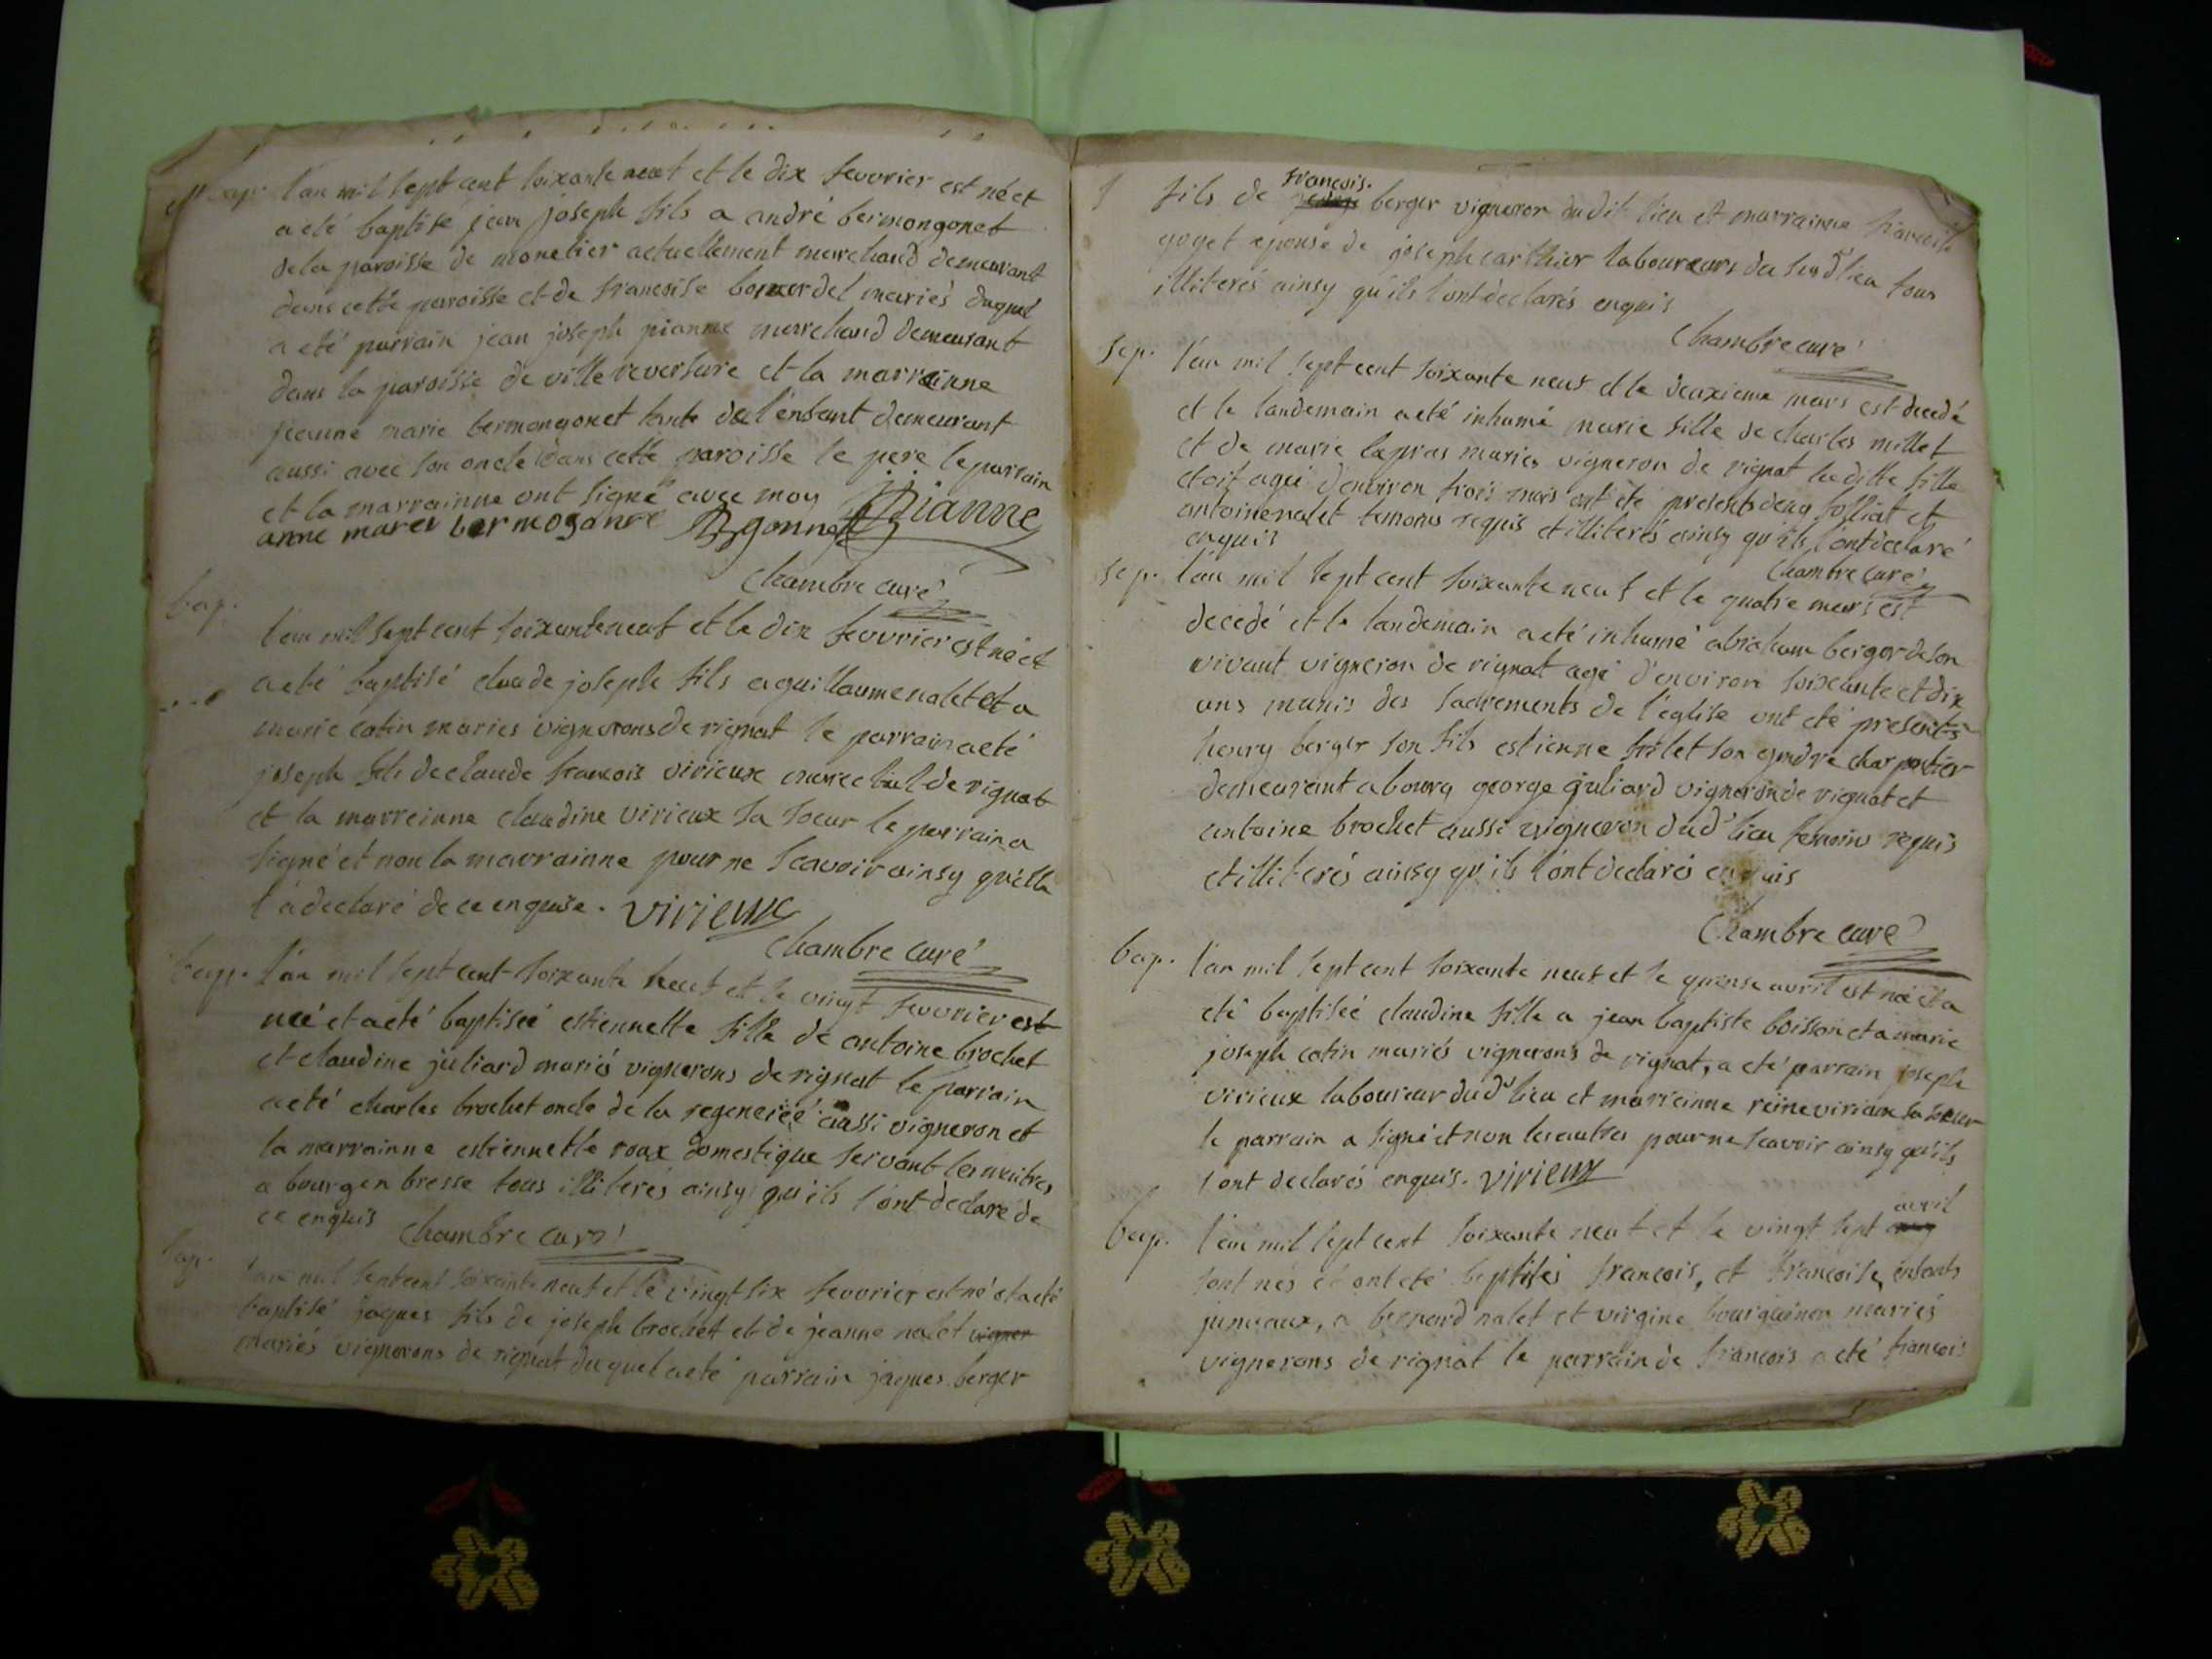 bap. l'an mil sept cent soixante neuf et le dix fevvrier est né et
a eté baptisé jean joseph fils a andré bermongonet
de la paroisse de monetier actuellement marchand demeurant
dans cette paroisse et de francoise mariés duquel
a eté parrain jean joseph pianne marchand demeurant
dans la paroisse de ville reversure et la marrainne
jeanne marie bermongonet tante de l'enfant demeurant
aussi avec son oncle dans cette paroisse le pere le parrain
et la marrainne ont signé avec moy jjpianne
anne marei bermoganne
chambre curé
bap.
l'an mil sept cent soixante neuf et le dix fevvrier est né et
a eté baptisé claude joseph fils a guillaume nalet et a
marie catin mariés vignerons de rignat le parrain a eté
joseph fils de claude francois virieux de rignat
et la marreinne claudine virieux sa soeur le parrain a
signé et non la marrainne pour ne scavoir ainsy quélla
l'a declaré de ce enquise. virieux
chambre curé
bap. l'an mil sept cent soixante neuf et le vingt fevvrier est
néé et a eté baptiséé estiennette fille de antoine brochet
et claudine juliard mariés vignerons de rignat le parrain
a eté charles brochet oncle de la regeneréé aussi vigneron et
la marrainne estiennette roux domestique servant les maitres
a bourg en bresse tous illiterés ainsy qu'ils l'ont declaré de
ce enquis chambre curé
bap. l'an mil sept cent soixante neuf et le vingt six fevvrier est né et a eté
baptisé jaques fils de joseph brochet et de jeanne nalet vigner
mariés vignerons de rignat duquel a eté parrain jaques berger
francois.
fils de berger vigneron dudit lieu et marrainne francoise
goyet epouse de joseph carthier laboureurs du susd lieu tous
illiterés ainsy qu'ils l'ont declarés enquis
chambre curé
sep. l'an mil sept cent soixante neuf et le deuxieme mars est decedé
et le landemain a eté inhumé marie fille de charles millet
et de marie lapras mariés vigneron de rignat laditte fille
etoit ageé d'environ trois mois ont eté presents folliat et
antoine nalet temoins requis et illiterés ainsy qu'ils l'ont declaré
enquis
chambre curé
sep. l'an mil sept cent soixante neuf et le quatre mars est
decedé et le landemain a eté inhumé abraham berger de son
vivant vigneron de rignat agé d'environ soixante et dix
ans munis des sacrements de l'eglise ont eté presents
henry berger son fils estienne son gendre charpentier
demeurant a bourg george juliard vigneron de rignat et
antoine brochet aussi vigneron dud lieu temoins requis
et illiterés ainsy qu'ils l'ont declarés enquis
chambre curé
bap. l'an mil sept cent soixante neuf et le quinse avril est néé et a
eté baptiséé claudine fille a jean baptiste boisson et a marie
joseph catin mariés vignerons de rignat, a eté parrain joseph
virieux laboureur dud lieu et marreinne reine virieux sa soeur
le parrain a signé et non les autres pour ne scavoir ainsy qu'ils
l'ont declarés enquis. virieux
avril
bap. l'an mil sept cent soixante neuf et le vingt sept
sont nés et ont eté baptisés francois, et francoise, enfants
jumeaux, a bernard nalet et virgine bourguinon mariés
vignerons de rignat le parrain de francois a eté francois